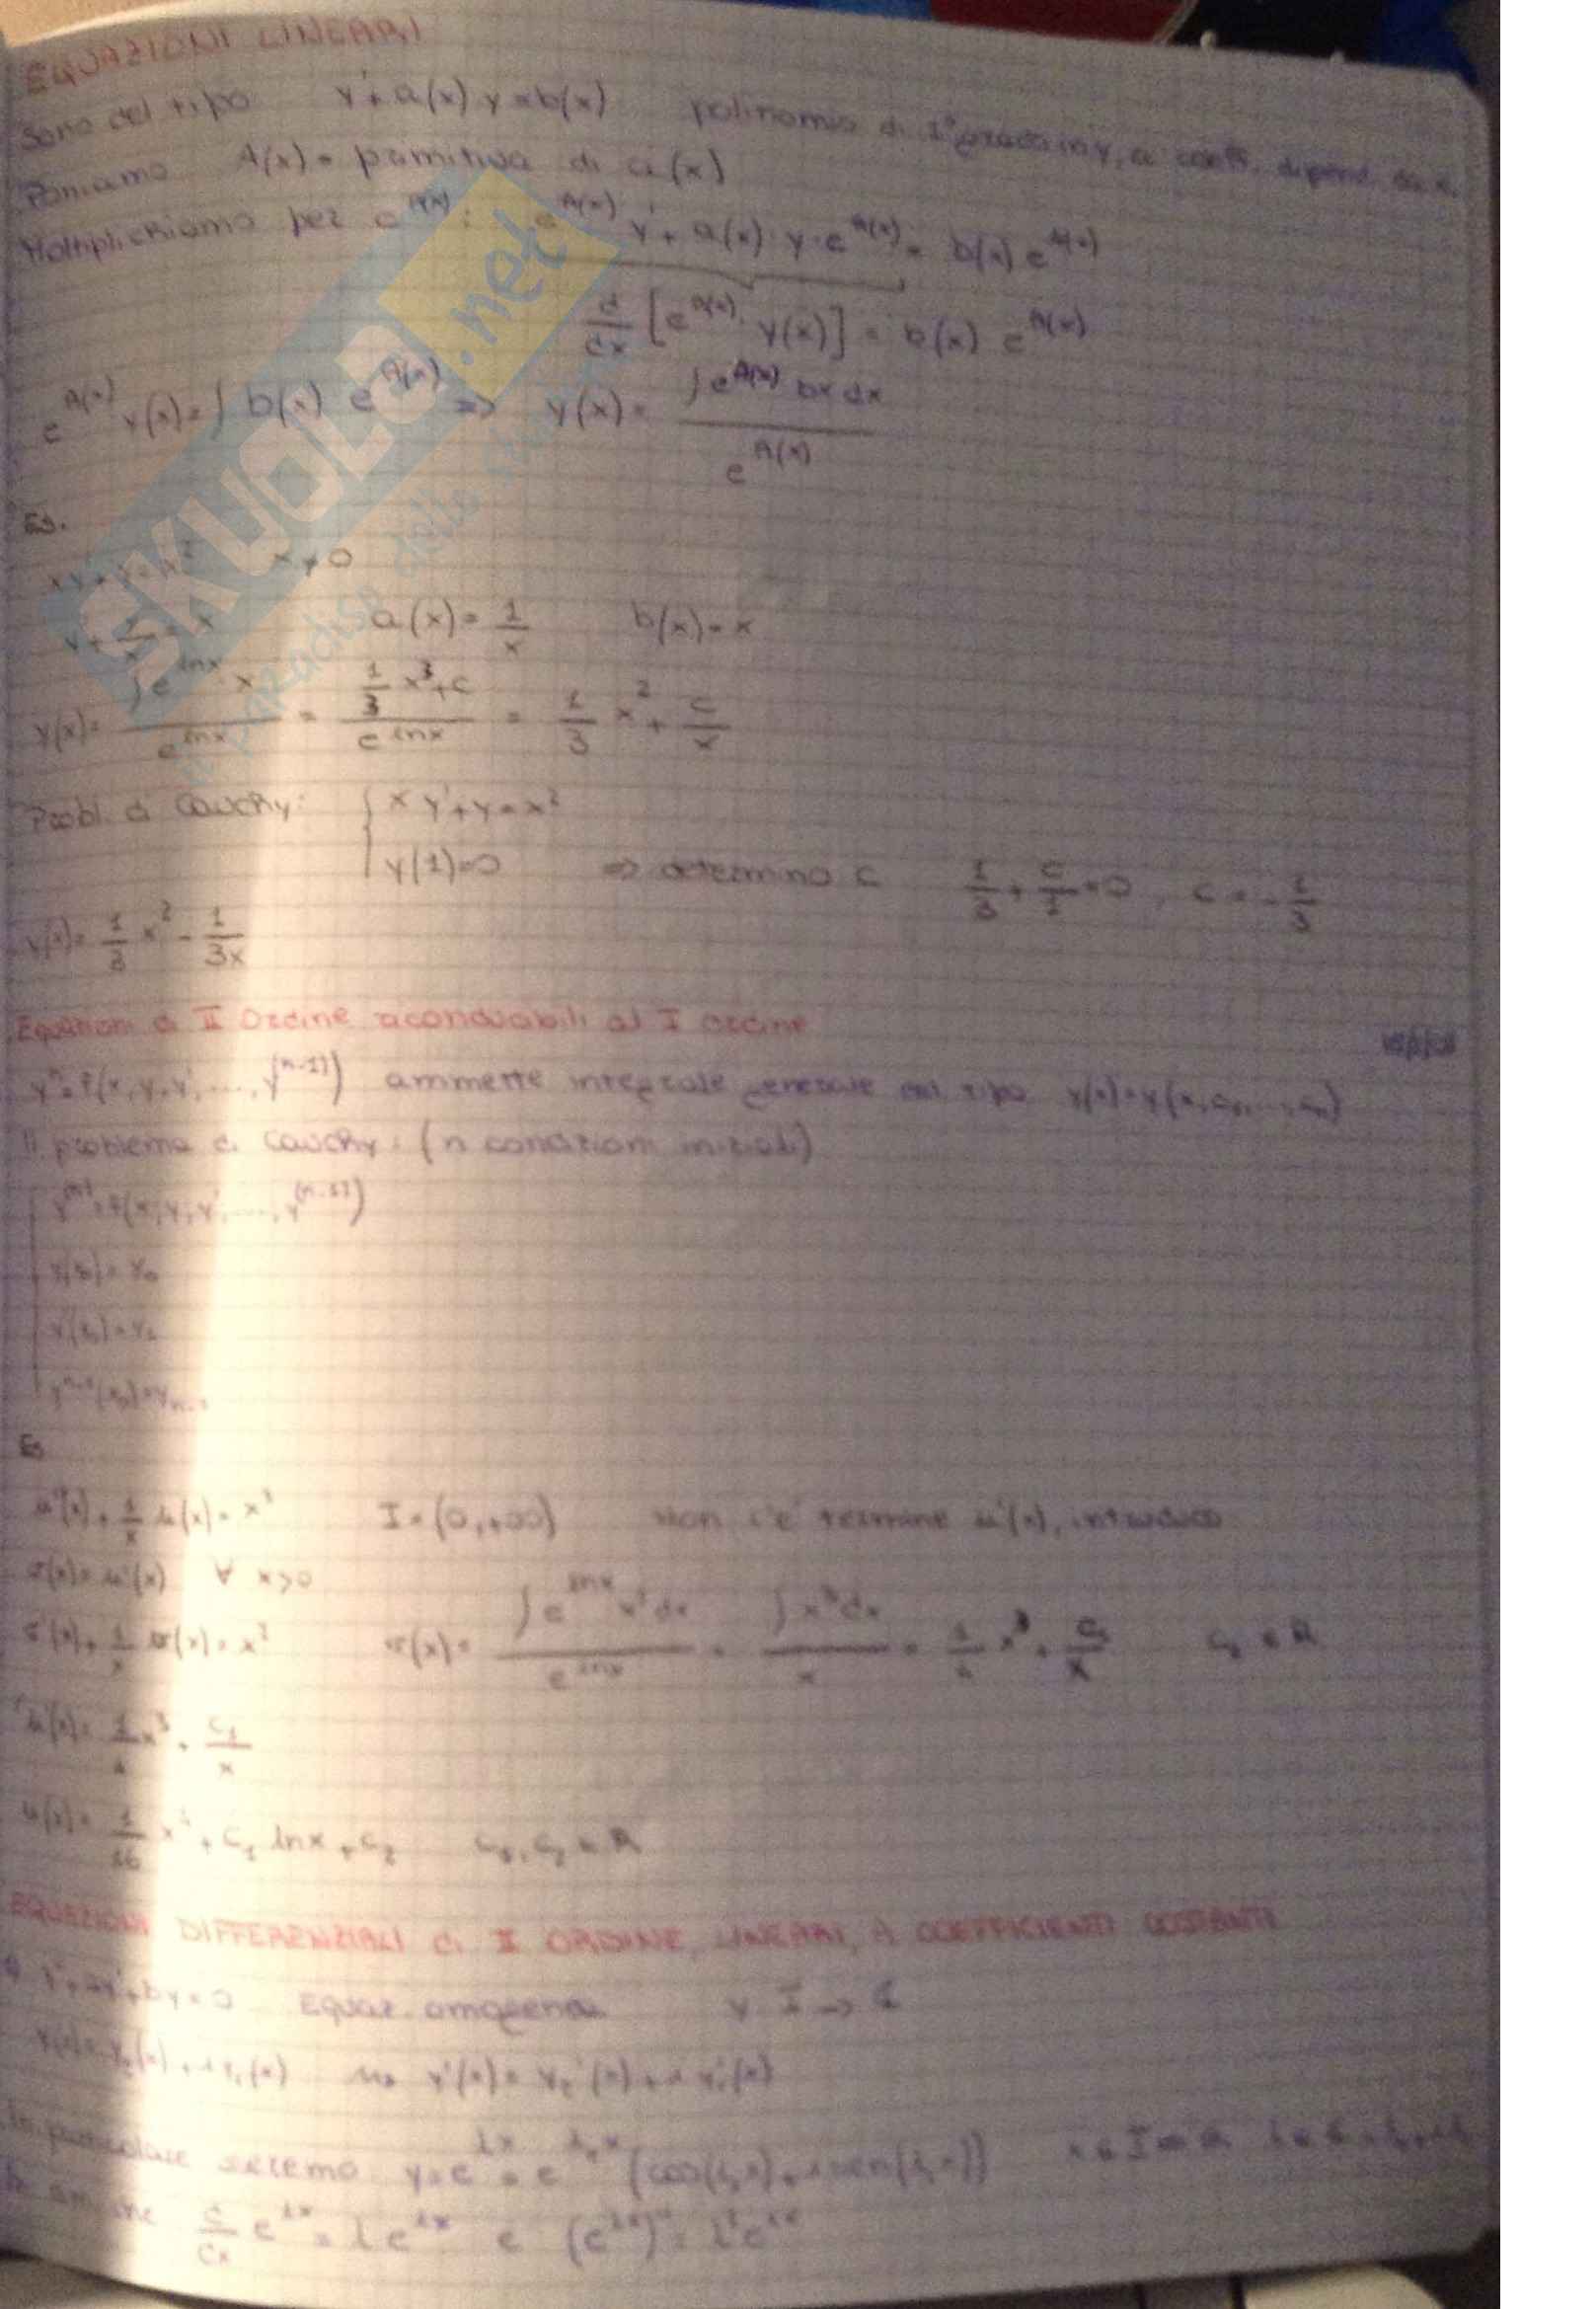 EQUAZIONI LINEARI
Sono del tipo y' + a(x) y = b(x) polinomio di 1° grado in y, a coeff. dipend. da x.
Poniamo A(x) = pamitiva di a(x)
Moltiplichiamo per e^A(x) : e^A(x) y' + a(x) · y · e^A(x) = b(x) e^A(x)
d/dx [e^A(x) · y(x)] = b(x) e^A(x)
e^A(x) y(x) = ∫ b(x) e^A(x) => y(x) = ∫ e^A(x) bx dx / e^A(x)
Es.
xy' + y = x² x ≠ 0
a(x) = 1/x b(x) = x
y(x) = ∫ e^lnx x / e^lnx = (1/3 x³ + c) / e^lnx = 1/3 x² + c/x
Probl. di Cauchy: { x y' + y = x²
y(1) = 0 => determino c 1/3 + c/1 = 0 , c = - 1/3
y(x) = 1/3 x² - 1/3x
Equazioni di II Ordine riconducibili al I ordine
y^n = f(x, y, y', ..., y^(n-1)) ammette integrale generale del tipo y(x) = y(x, c₁, ..., cₙ)
Il problema di Cauchy: (n condizioni iniziali)
y^(n) = f(x, y, y', ..., y^(n-1))
y(x₀) = y₀
y'(x₀) = y₁
y^n-1(x₀) = yₙ₋₁
Es
u''(x) + 1/x u'(x) = x² I = (0, +∞) Non c'e' termine u(x), introduco
v(x) = u'(x) ∀ x > 0
v'(x) + 1/x v(x) = x² v(x) = ∫ e^lnx x² dx / e^lnx = ∫ x³ dx / x = 1/4 x³ + c₁/x c₁ ∈ R
u'(x) = 1/4 x³ + c₁/x
u(x) = 1/16 x⁴ + c₁ lnx + c₂ c₁, c₂ ∈ R
EQUAZIONI DIFFERENZIALI di II ORDINE, LINEARI, A COEFFICIENTI COSTANTI
y'' + ay' + by = 0 Equaz. omogenea y: I -> C
y'(x) = y₂'(x) + i y₁'(x)
In particolare saremo y = e^λx = e^λ₁x (cos(λ₂x) + i sen(λ₂x))
e^λx = λ e^λx e (e^λx)'' = λ² e^λx
SKUOLA.net
il paradiso dello studente